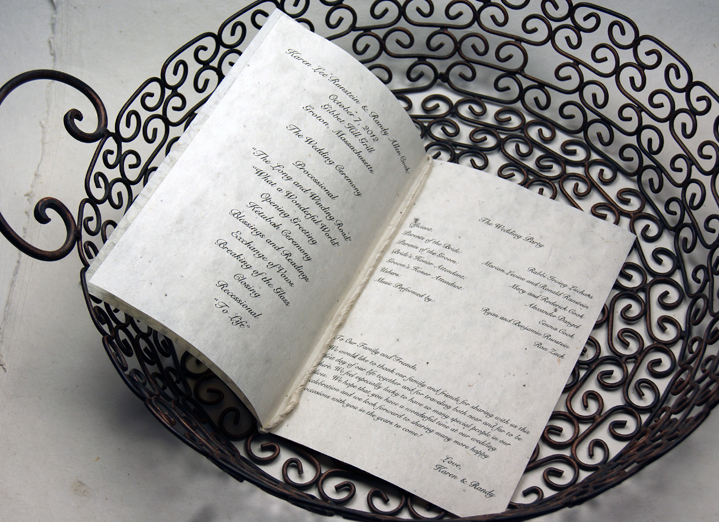 Karen Lee Runstein & Randy Allen Cook
October 7, 2012
Gibbet Hill Grill
Groton, Massachusetts
The Wedding Ceremony
Processional
"The Long and Winding Road"
"What a Wonderful World"
Opening Greeting
Ketubah Ceremony
Blessings and Readings
Exchange of Vows
Breaking of the Glass
Closing
Recessional
"To Life"
The Wedding Party
Officiant:
Rabbi Irving
Parents of the Bride:
Marian Louise and Ronald Runstein
Parents of the Groom:
Mary and Roderick Cook
Bride's Honor Attendant:
Alexander
Groom's Honor Attendant:
Emma Cook
Ushers:
Ryan and Benjamin Runstein
Music Performed by:
Ron
To Our Family and Friends,
We would like to thank our family and friends for sharing with us this
first day of our life together and for traveling both near and far to be
here. We feel especially lucky to have so many special people in our
lives. We hope that you have a wonderful time at our wedding
celebration and we look forward to sharing many more happy
occasions with you in the years to come!
Love,
Karen & Randy